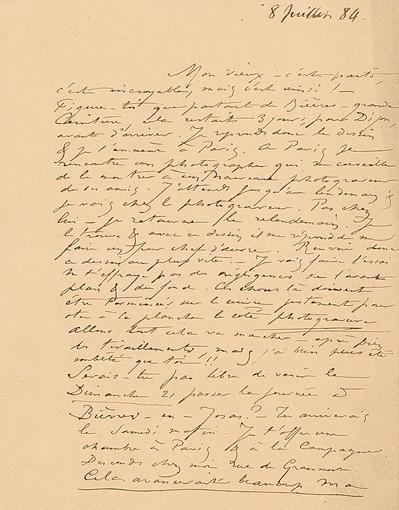 8 Juillet 84.
Mon vieux - c'est parti,
c'est incroyable, mais c'est ainsi ! -
Figure-toi que partant de Bièvres - grande
Ceinture cela restait 3 jours, pour Dijon,
avant d'arriver. Je reprends donc le dessin
& je l'emmène à Paris. A Paris je
rencontre un photographe qui me conseille
de le montrer à un graveur
de ses amis. J'attends jusqu'au lendemain &
je vais chez le photograveur. Pas chez
lui - je retourne le relendemain. Je
le trouve & avec ce dessin il me répond de me
faire un pur chef d'œuvre. Renvoie donc
ce dessin au plus vite. - Je vais faire l'essai
Ne t'effraye pas des négligences de l'avant
plan & du fond. Ces choses là doivent
être terminées sur le cuivre justement pour
ôter à la planche le côté photogravure
allons tout cela va marcher - après bien
des tiraillements, mais j'ai bien plus été
embêté que toi ! !!
Serais-tu pas libre de venir le
Dimanche 21 passer la journée à
Bièvres-en-Josas ? - Tu arriverais
le Samedi matin. Je t'offre une
chambre à Paris & à la Campagne
Descends chez moi rue de Grammont.
Cela avancerait beaucoup ma